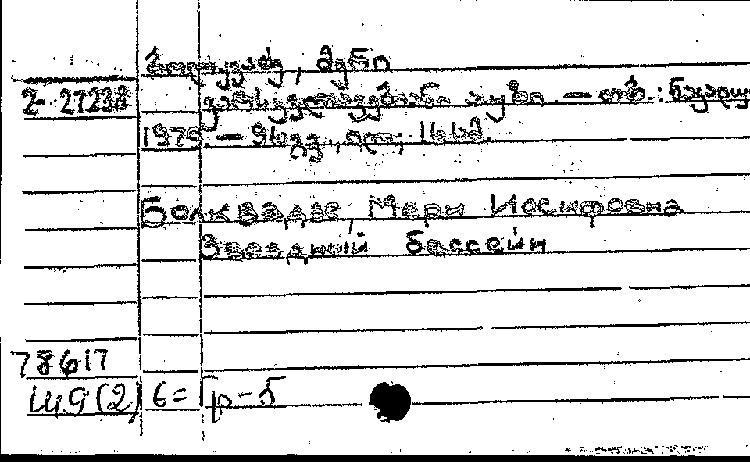 ბოლქვაძე, მერი
2-27238 ვარსკვლავებიანი აუზი. — თბ.: ნაკადული
1979. — 96გვ., ილ; 16სმ.
Болквадзе, Мери Иосифовна
Звездный бассейн
78617
Ш9(2) 6=Гр-5